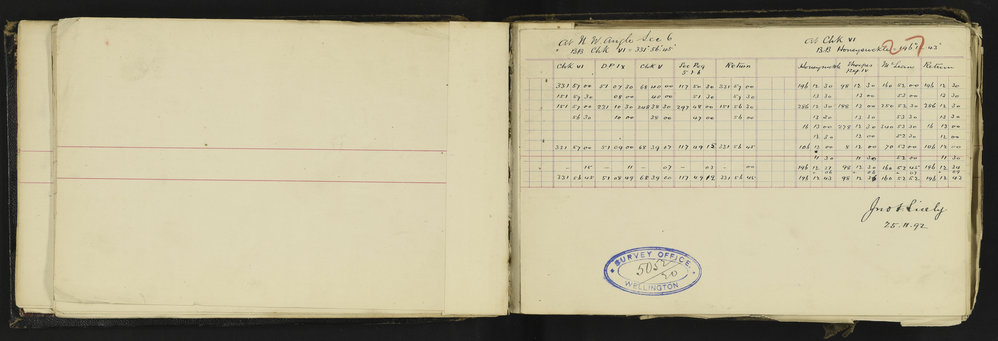 At N.W angle Sec 6
BB Chk VI = 331° 56' 45"
Chk VI DPIX Chk V Sec Peg Return
5.1.6
331 57 00 51 07 30 68 40 00 117 50 30 331 57 00
151 57 30 08 00 40 00 51 30 57 30
151 57 00 231 10 30 248 38 30 297 48 00 151 56 30
56 30 10 00 38 00 47 00 56 00
331 57 00 51 09 00 68 39 07 117 49 15 331 56 45
- 15 - 11 - 07 - 03 - 00
331 56 45 51 08 49 68 39 00 117 49 12 331 56 45
At Chk VI
BB Honeysuckle = 196° 12' 43"
27
Honeysuckle Thorpes McLean Return
Peg IV
196 12 30 98 12 30 160 52 00 196 12 30
13 30 13 00 53 00 13 30
286 12 30 188 13 00 250 52 30 286 12 30
13 00 13 00 53 30 13 00
16 13 00 278 12 30 340 53 30 16 13 00
12 30 12 00 52 30 12 00
106 12 00 8 12 00 70 53 00 106 12 00
11 30 11 30 52 00 11 30
196 12 37 98 12 30 160 52 45 196 12 34
06 06 07 09
196 12 43 98 12 36 160 52 52 196 12 43
25.11.92
SURVEY OFFICE
WELLINGTON